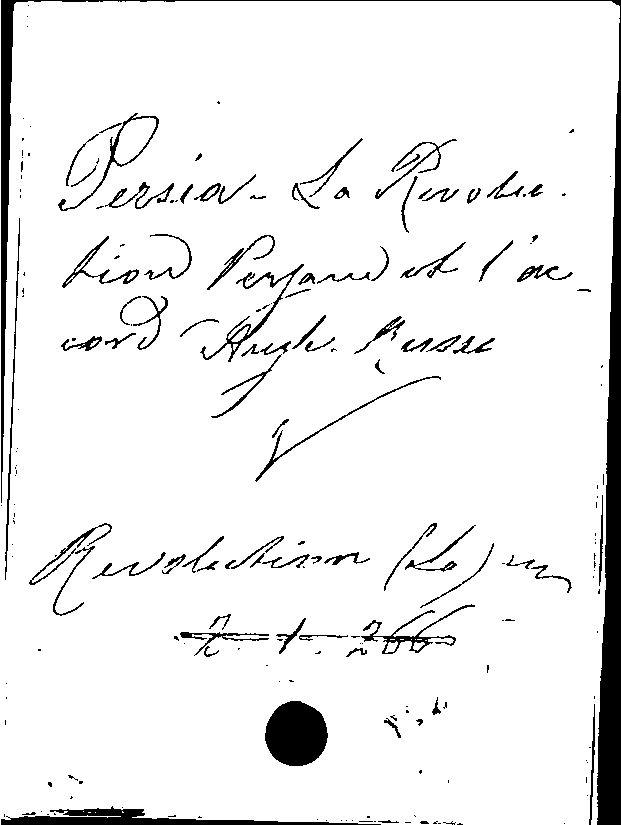 Persia - La Revolu-
tion Persane et l'ac-
cord Anglo-Russe
Revolution (La)
Z. 1. 266